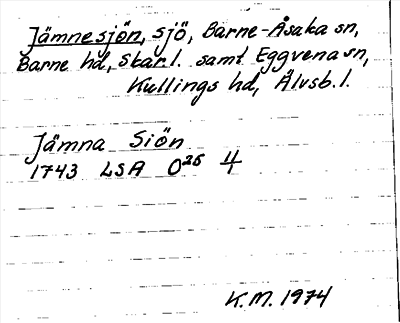 Jämnesjön, sjö, Barne-Åsaka sn,
Barne hd, Skar l. samt Eggvena sn,
Kullings hd, Älvsb. l.
Jämna Siön
1743 LSA O²⁵ 4
K.M. 1974